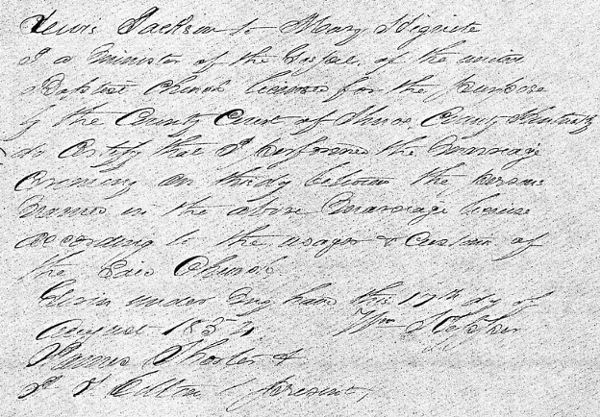 Lewis Jackson to Mary Hignite
I a Minister of the Gospel of the united
Baptist Church licensed for the purpose
by the County Court of County Kentucky
do certify that I performed the Marriage
Ceremony on this dy between the persons
Named in the above Marriage license
according to the usages & custom of
the said Church
Given under my hand this 17th dy of
August 185 Wm
James &
present